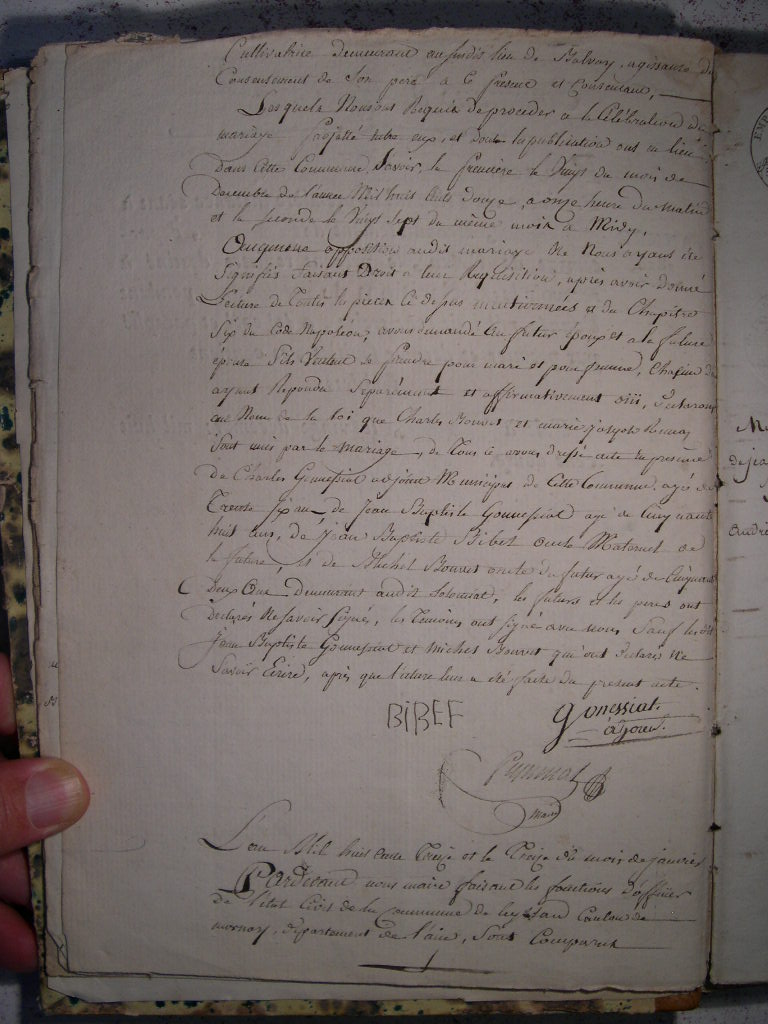 Cultivatrice demeurant au susdit lieu de Balvay, agissante du
Consentement de Son pere à ce present et Consentant,
Lesquels Nous ont Requis de proceder a la Célébration du
mariage projetté entre eux, et dont la publication ont eu lieu
Dans Cette Commune Savoir, la première le Vingt du mois de
Decembre de l'année Mil huit Cents douze, a onze heure du Matin
et la seconde le Vingt Sept du même mois a Midy,
Oucqunone opposition audit mariage Ne Nous ayant été
Signifiés faisant Droit a leur Requisition, après avoir donné
Lecture de Toutes les pieces Ci dessus mentionnées et du Chapitre
Six du Code Napoléon, avons demandé Au futur époux et a la future
épouse S'ils Veulent se prendre pour mari et pour femme, Chacun d'eux
ayant Repondu Separément et affirmativement oui, Declarons
au Nom de la loi que Charles Bouvet et marie josephte
Sont unis par le mariage, de Tous ce avons dressé acte En presence
de Charles Gonnessiat adjoint Municipal de Cette Commune, agé de
Trente six ans, de Jean Baptiste Gonnessiat agé de Cinquante
huit ans, de Jean Baptiste Bibet oncle Maternel de
la future, et de Michel Bouvet oncle du futur agé de Cinquante
Deux Ans demeurant audit Solomiat, les futurs et les peres ont
Declarés Ne Savoir Signés, les Témoins ont Signé avec nous Sauf les dits
Jean Baptiste Gonnessiat et Michel Bouvet qui ont declarés Ne
Savoir Ecrire, après que lecture leur a été faite du present acte.
BIBEF
Gonessiat
maire
L'an Mil huit Cents Treize et le Treize du mois de janvier
Pardevant nous maire faisant les fonctions d'officier
de l'état Civil de la commune de leyssard Canton de
mornay, département de l'ain, Sont Comparus